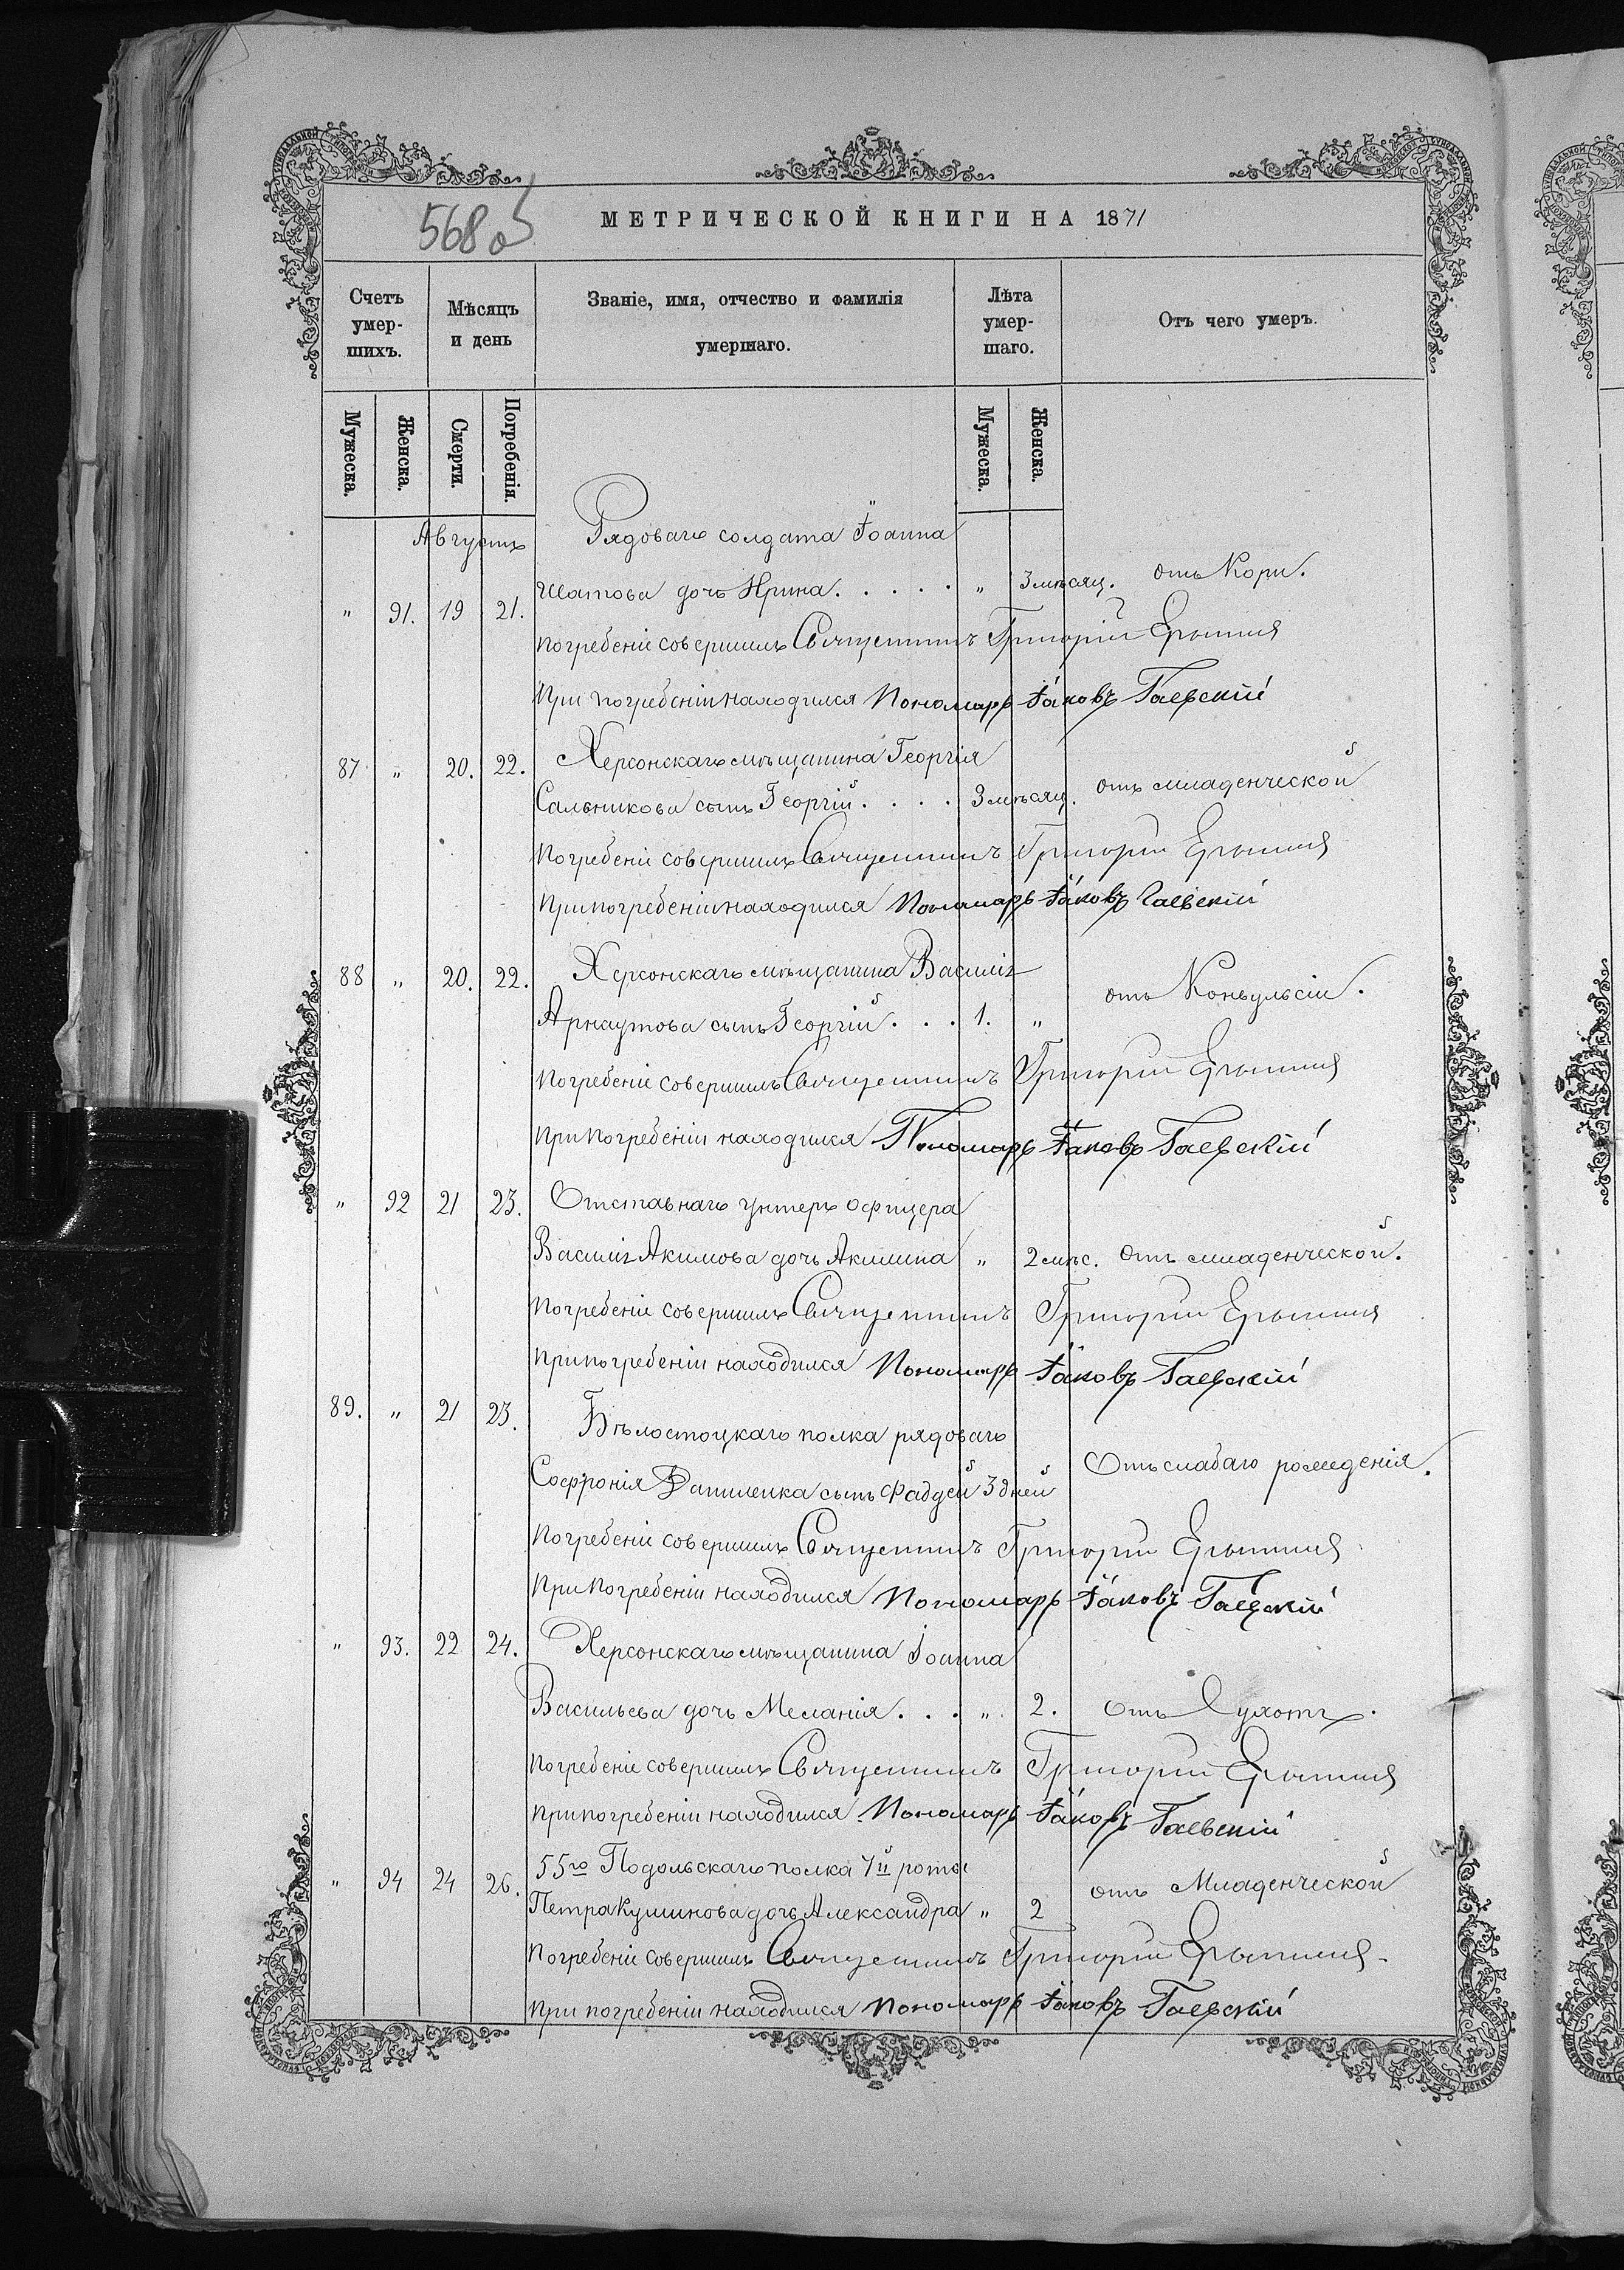 568 об
МЕТРИЧЕСКОЙ КНИГИ НА 1871
Счетъ умер- шихъ.
Мѣсяцъ и день
Званіе, имя, отчество и фамилія умершаго.
Лѣта умер- шаго.
Отъ чего умеръ.
Мужеска. Женска. Смерти. Погребенія. Мужеска. Женска.
Августъ Рядоваго солдата Іоанна
" 91. 19 21. Шатова дочь Ирина. . . . . " 3 мѣсяц. отъ Кори.
Погребеніе совершилъ Священникъ Григорій
При погребеніи находился Пономарь Іаковъ Гаевскій
87 " 20. 22. Херсонскаго мѣщанина Георгія
Сальникова сынъ Георгій. . . . 3 мѣсяц. отъ младенческой
Погребеніе совершилъ Священникъ Григорій
При погребеніи находился Пономарь Іаковъ Гаевскій
88 " 20. 22. Херсонскаго мѣщанина Василія
Арнаутова сынъ Георгій. . . 1. " отъ Конвульсіи.
Погребеніе совершилъ Священникъ Григорій
При погребеніи находился Пономарь Іаковъ Гаевскій
" 92 21 23. Отставнаго унтеръ офицера
Василія Акимова дочь Акилина " 2 мѣс. Отъ младенческой.
Погребеніе совершилъ Священникъ Григорій
При погребеніи находился Пономарь Іаковъ Гаевскій
89. " 21 23. Бѣлостоцкаго полка рядоваго
Софронія Даниленка сынъ Фаддей 3 дней Отъ слабаго рожденія.
Погребеніе совершилъ Священникъ Григорій
При погребеніи находился Пономарь Іаковъ Гаевскій
" 93. 22 24. Херсонскаго мѣщанина Іоанна
Васильева дочь Меланія. . . " 2. Отъ Сухотъ.
Погребеніе совершилъ Священникъ Григорій
При погребеніи находился Пономарь Іаковъ Гаевскій
" 94 24 26. 55го Подольскаго полка 7й роты
Петра дочь Александра " 2 отъ Младенческой
Погребеніе совершилъ Священникъ Григорій
При погребеніи находился Пономарь Іаковъ Гаевскій